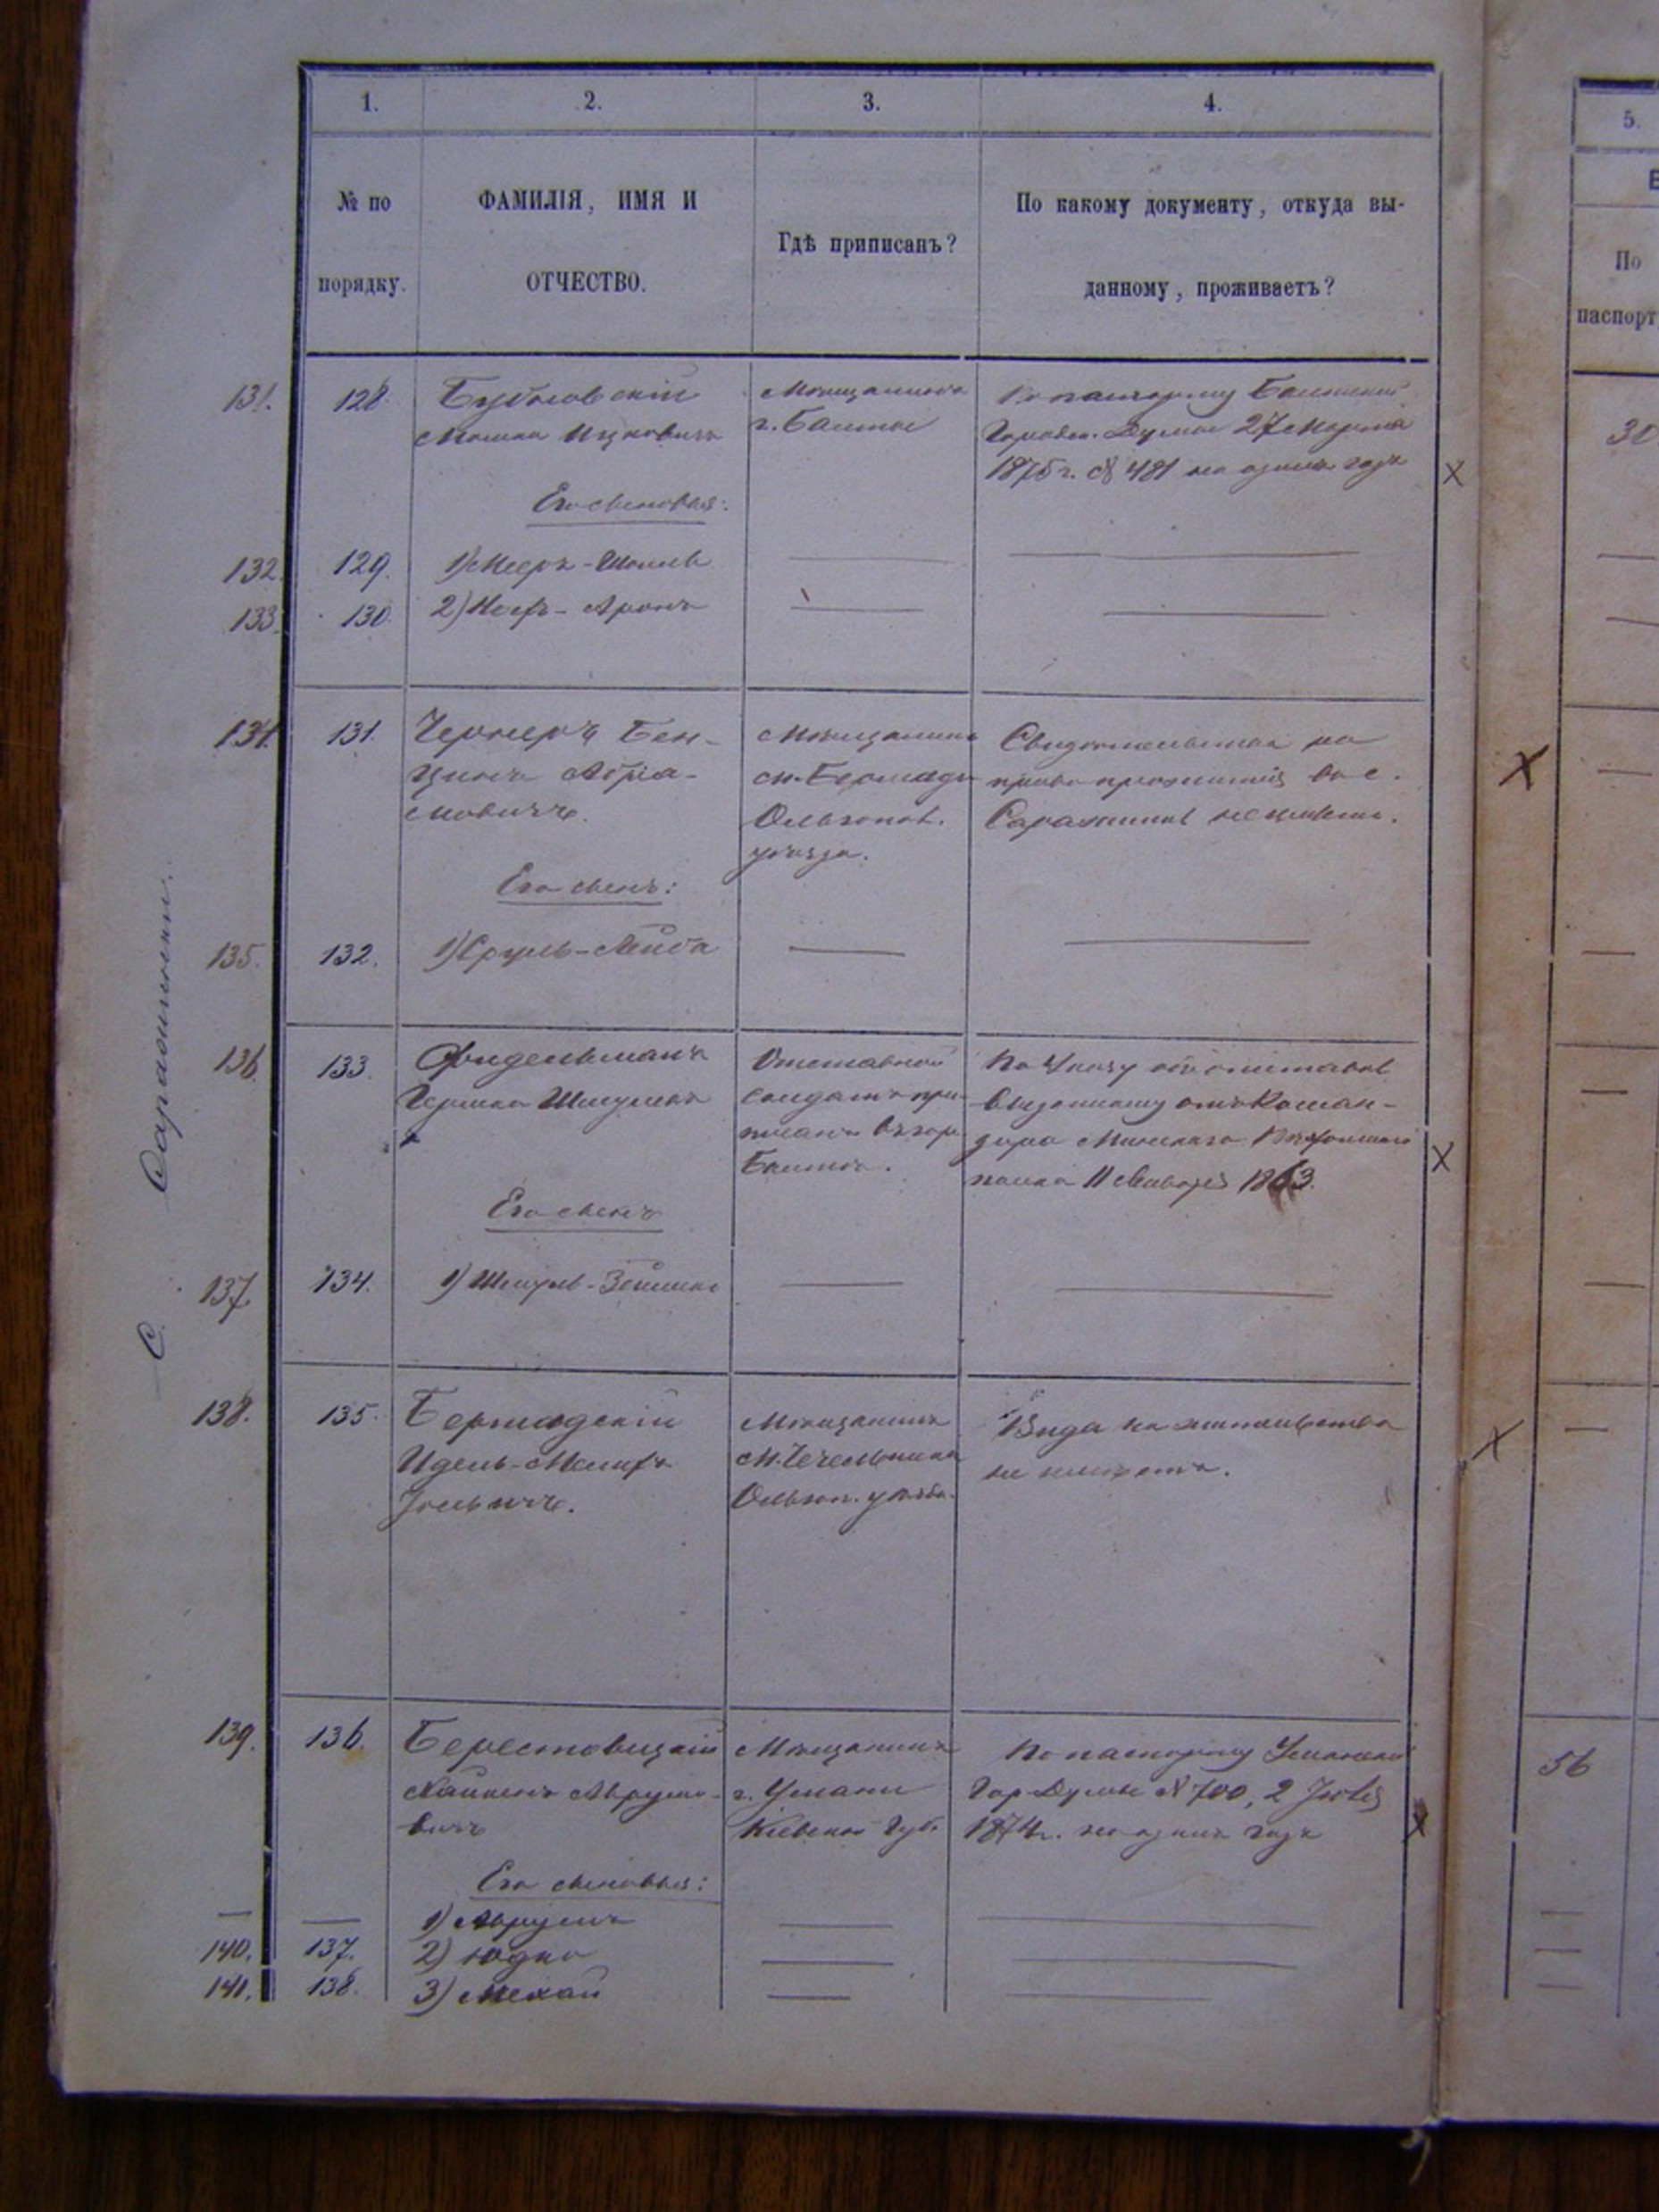 1.
2.
3.
4.
5.
№ по
порядку.
ФАМИЛІЯ, ИМЯ И
ОТЧЕСТВО.
Гдѣ приписанъ?
По какому документу, откуда вы-
данному, проживаетъ?
По
паспорт
С. Саражинки.
131.
128.
Мошко Ицковичъ
Мѣщанинъ
г. Балты
По паспорту Балтской
Городск. Думы 27 Марта
1875 г. № 481 на одинъ годъ
X
30
Его сыновья:
132.
129.
1) Мееръ-Шмиль
133.
130.
2) Аронъ
134.
131.
Чернеръ Бен-
ціонъ Абра-
мовичъ.
Мѣщанинъ
м.
Ольгопол.
уѣзда.
Свидѣтельства на
право проживанія въ с.
Саражинкѣ не имѣетъ.
X
Его сынъ:
135.
132.
1) Сруль-Лейба
136.
133.
Фидельманъ
Гершко Шмулевъ
Отставной
солдатъ при-
писанъ въ гор.
Балтѣ.
По Указу объ отставкѣ
выданному отъ Коман-
дира Минскаго Пѣхотнаго
полка 11 Января 1863.
X
Его сынъ
137.
134.
1) Шмуль-Зейликъ
138.
135.
Бершадскій
Идель-
Іосьевичъ.
Мѣщанинъ
м. Чечельника
Ольгоп. уѣзда.
Вида на жительство
не имѣетъ.
X
139.
136.
Берестовицкій
Аврумо-
вичъ
Мѣщанинъ
г. Умани
Кіевской Губ.
По паспорту Уманской
Гор. Думы № 700, 2 Іюля
1874 г. на одинъ годъ
X
56
Его сыновья:
1) Аврумъ
140.
137.
2) Юдко
141.
138.
3)